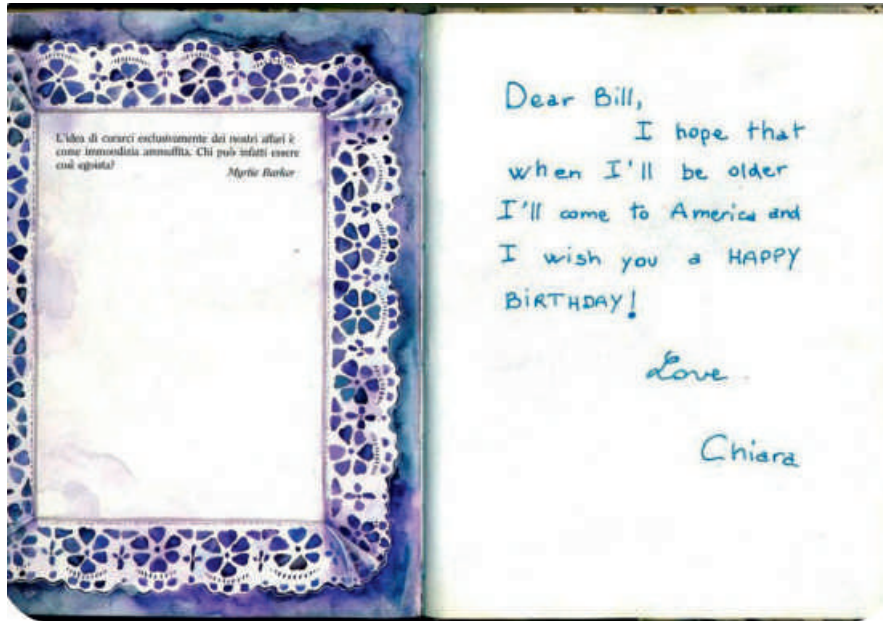 L'idea di curarci esclusivamente dei nostri affari è
come immondizia ammuffita. Chi può infatti essere
così egoista?
Myrtie Barker
Dear Bill,
I hope that
when I'll be older
I'll come to America and
I wish you a HAPPY
BIRTHDAY!
Love
Chiara